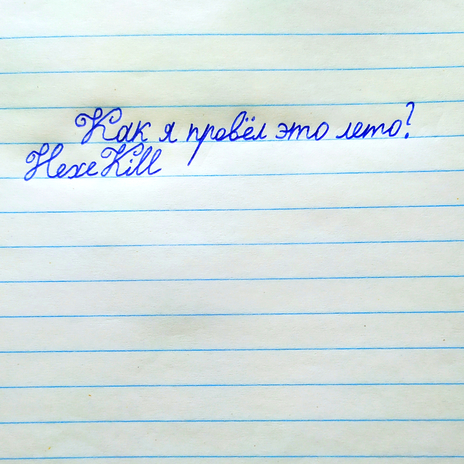 Как я провёл это лето?
HexeKill